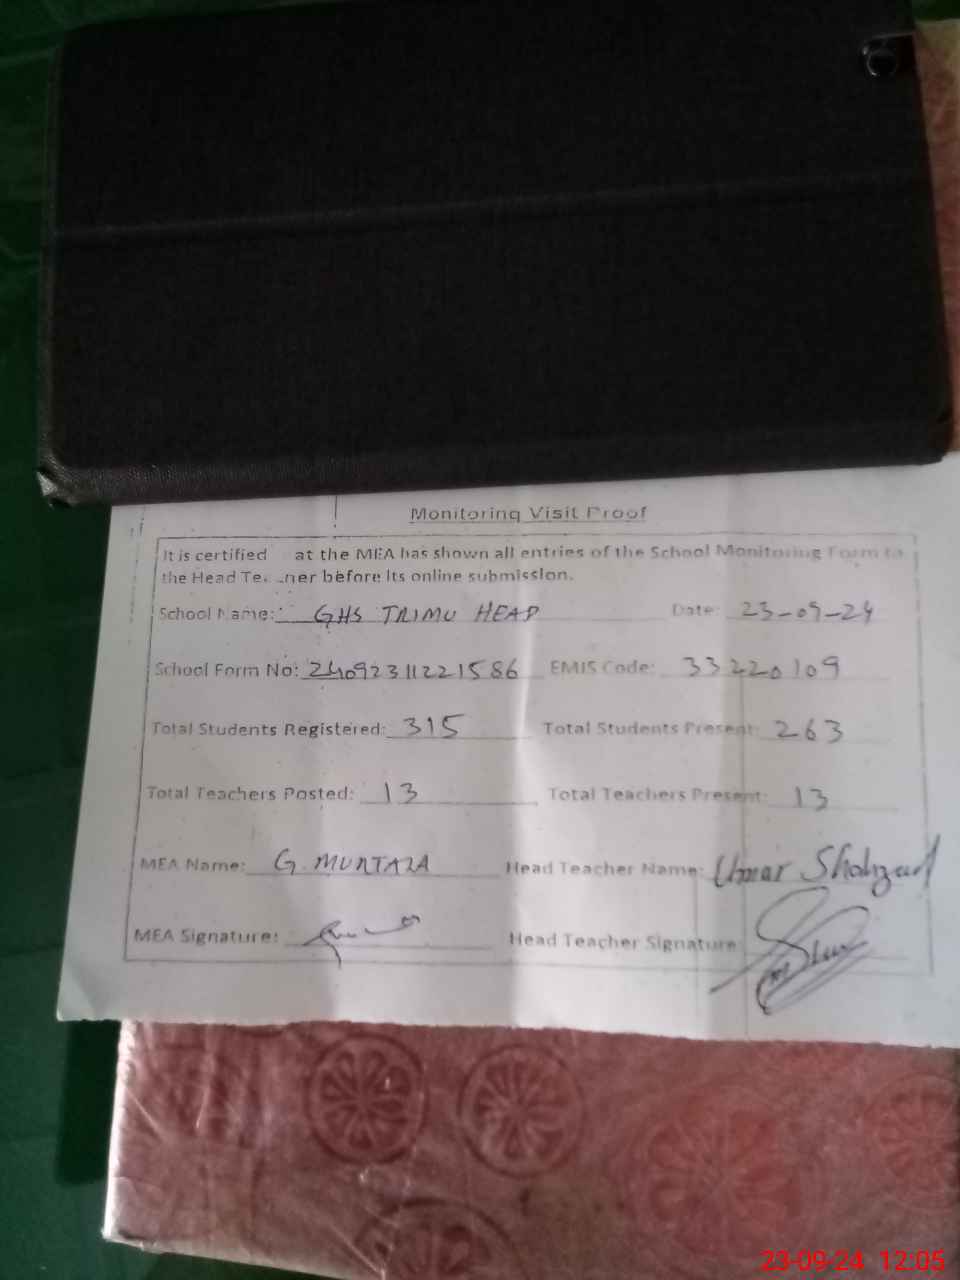 Monitoring Visit Proof
It is certified at the MEA has shown all entries of the School Monitoring Form to
the Head before its online submission.
School Name: GHS TRIMU HEAD Date: 23-09-24
School Form No: 2409231122 1586 EMIS Code: 33220109
Total Students Registered: 315 Total Students Present: 263
Total Teachers Posted: 13 Total Teachers Present: 13
MEA Name: G. MURTAZA Head Teacher Name: Umar Shahzad
MEA Signature: Head Teacher Signature:
23-09-24 12:05